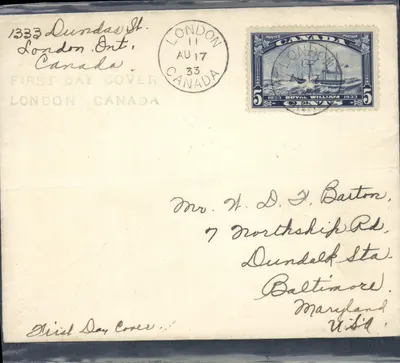 1333 Dundas St.
London, Ont.
Canada.
FIRST DAY COVER
LONDON CANADA
LONDON
11
AU 17
33
CANADA
CANADA
5 CENTS 5
1833 ROYAL WILLIAM 1933
Mr. W. D. F. Barton,
7 Northship Rd.
Dundalk Sta.
Baltimore.
Maryland
U.S.A.
First Day Cover.